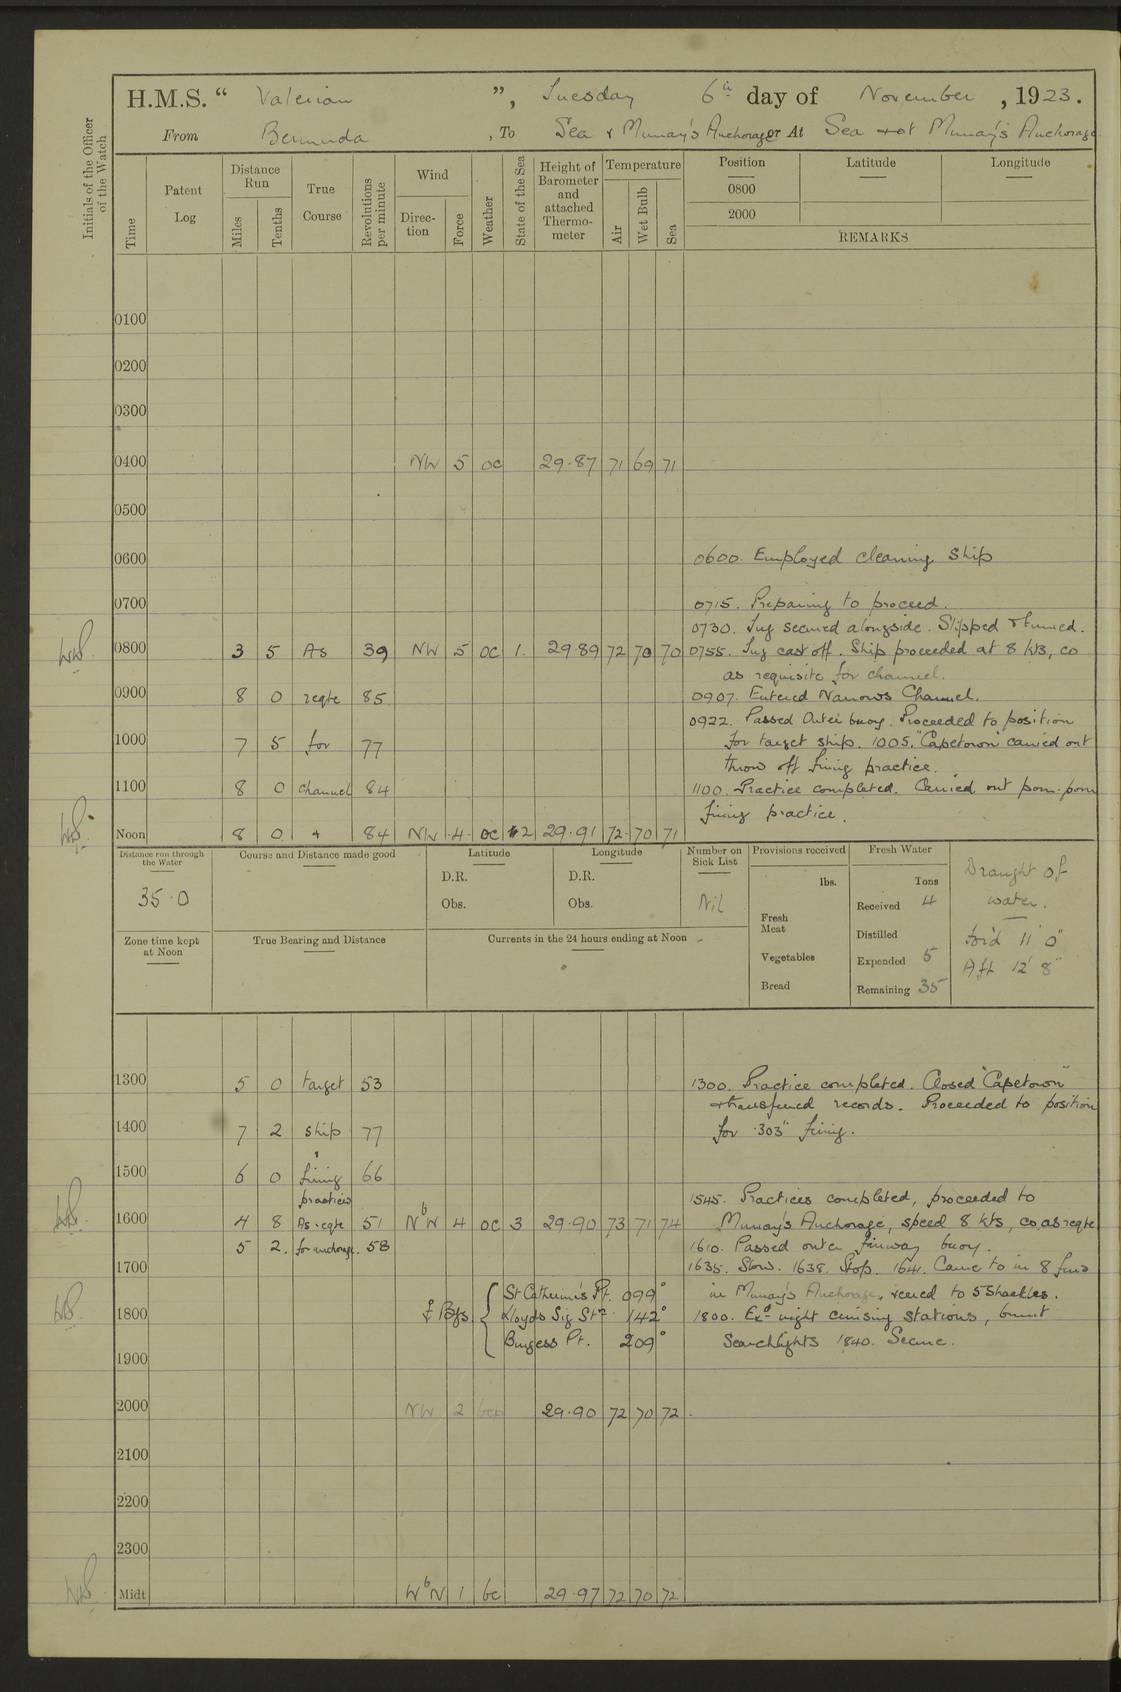 H.M.S. “ Valerian ”, Tuesday 6th day of November, 1923.
From Bermuda, To Sea & Murray's Anchorage or At Sea & at Murray's Anchorage
Initials of the Officer of the Watch
Time
Patent Log
Distance Run
Miles
Tenths
True Course
Revolutions per minute
Wind
Direction
Force
Weather
State of the Sea
Height of Barometer and attached Thermometer
Temperature
Air
Wet Bulb
Sea
Position Latitude Longitude
0800
2000
REMARKS
0100
0200
0300
0400 NW 5 oc 29.87 71 69 71
0500
0600 0600. Employed cleaning ship
0700 0715. Preparing to proceed.
0730. Tug secured alongside. Slipped & turned.
0800 3 5 As 39 NW 5 oc 1. 29.89 72 70 70 0755. Tug cast off. Ship proceeded at 8 kts, co
as requisite for channel.
0900 8 0 reqte 85 0907. Entered Narrows Channel.
0922. Passed Outer buoy. Proceeded to position
1000 7 5 for 77 for target ship. 1005. "Capetown" carried out
throw off firing practice.
1100 8 0 channel 84 1100. Practice completed. Carried out pom-pom
firing practice.
Noon 8 0 & 84 NW 4 oc 2 29.91 72 70 71
Distance run through the Water
35.0
Course and Distance made good
Latitude
D.R.
Obs.
Longitude
D.R.
Obs.
Number on Sick List
Nil
Provisions received
lbs.
Fresh Meat
Vegetables
Bread
Fresh Water
Tons
Received 4
Distilled
Expended 5
Remaining 35
Draught of
water.
for'd 11' 0"
Aft 12' 8"
Zone time kept at Noon
True Bearing and Distance
Currents in the 24 hours ending at Noon
1300 5 0 target 53 1300. Practice completed. Closed "Capetown"
& transferred records. Proceeded to position
1400 7 2 ship 77 for .303" firing.
1500 6 0 firing 66
practices 1545. Practices completed, proceeded to
1600 4 8 As reqte 51 NbW 4 oc 3 29.90 73 71 74 Murray's Anchorage, speed 8 kts, co. as reqte
5 2. for anchorage. 58 1610. Passed outer fairway buoy.
1700 1635. Slow. 1638. Stop. 1641. Came to in 8 fms
St Catherine's Pt. 099° in Murray's Anchorage, veered to 5 shackles.
1800 Bgs. Lloyds Sig Stn. 142° 1800. Exd night cruising stations, burnt
Burgess Pt. 209° Searchlights 1840. Secure.
1900
2000 NW 2 bcp 29.90 72 70 72
2100
2200
2300
Midt WbN 1 bc 29.97 72 70 72